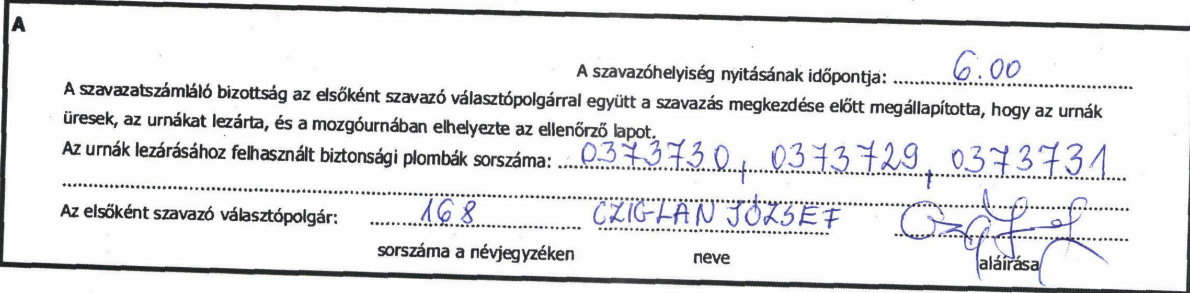 A
A szavazóhelyiség nyitásának időpontja: 6.00
A szavazatszámláló bizottság az elsőként szavazó választópolgárral együtt a szavazás megkezdése előtt megállapította, hogy az urnák
üresek, az urnákat lezárta, és a mozgóurnában elhelyezte az ellenőrző lapot.
Az urnák lezárásához felhasznált biztonsági plombák sorszáma: 0373730, 0373729, 0373731
Az elsőként szavazó választópolgár: 168 CZIGLAN JÓZSEF
sorszáma a névjegyzéken neve aláírása